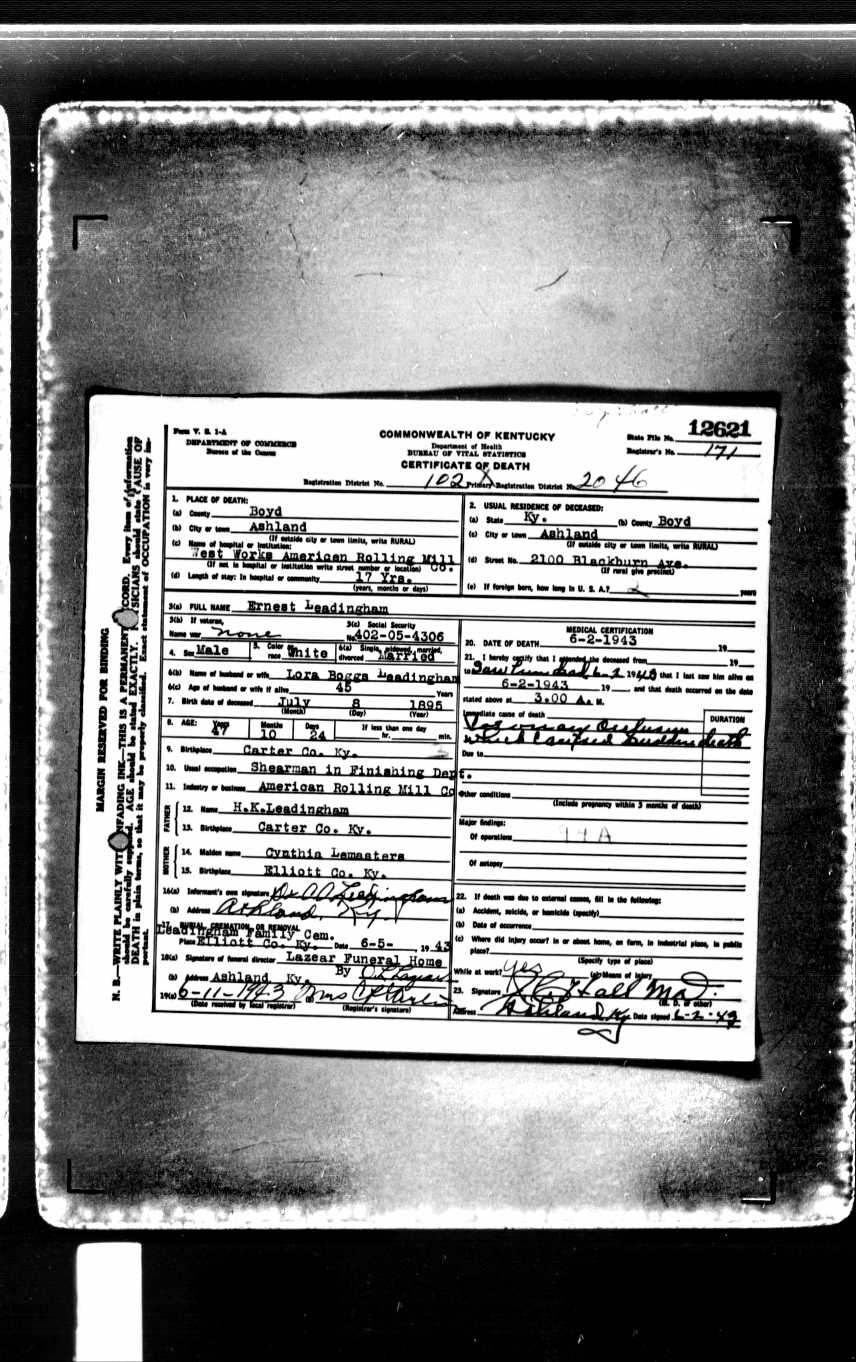 Form V. S. 1-A
DEPARTMENT OF COMMERCE
Bureau of the Census
COMMONWEALTH OF KENTUCKY
Department of Health
BUREAU OF VITAL STATISTICS
CERTIFICATE OF DEATH
State File No. 12621
Registrar's No. 171
Registration District No. 102 Primary Registration District No. 2046
1. PLACE OF DEATH:
(a) County Boyd
(b) City or town Ashland
(If outside city or town limits, write RURAL)
(c) Name of hospital or institution:
West Works American Rolling Mill Co.
(If not in hospital or institution write street number or location)
(d) Length of stay: In hospital or community 17 Yrs.
(years, months or days)
2. USUAL RESIDENCE OF DECEASED:
(a) State Ky. (b) County Boyd
(c) City or town Ashland
(If outside city or town limits, write RURAL)
(d) Street No. 2100 Blackburn Ave.
(If rural give precinct)
(e) If foreign born, how long in U. S. A.? years
3(a) FULL NAME Ernest Leadingham
3(b) If veteran, 3(c) Social Security
Name war none No. 402-05-4306
4. Sex Male 5. Color or race White 6(a) Single, widowed, married, divorced Married
6(b) Name of husband or wife Lora Boggs Leadingham
6(c) Age of husband or wife if alive 45 Years
7. Birth date of deceased July 8 1895
(Month) (Day) (Year)
8. AGE: Years Months Days If less than one day
47 10 24 hr. min.
9. Birthplace Carter Co. Ky.
10. Usual occupation Shearman in Finishing Dept.
11. Industry or business American Rolling Mill Co
FATHER
12. Name H.K.Leadingham
13. Birthplace Carter Co. Ky.
MOTHER
14. Maiden name Cynthia Lemasters
15. Birthplace Elliott Co. Ky.
16(a) Informant's own signature Dr
(b) Address Ashland, Ky.
17. BURIAL, CREMATION, OR REMOVAL
Leadingham Family Cem.
Place Elliott Co. Ky. Date 6-5- 1943
18(a) Signature of funeral director Lazear Funeral Home
(b) Address Ashland Ky. By
19(a) 6-11-1943 (b) Mrs
(Date received by local registrar) (Registrar's signature)
MEDICAL CERTIFICATION
20. DATE OF DEATH 6-2-1943 19
21. I hereby certify that I attended the deceased from 19
to Saw him dead 6-2 1943 that I last saw him alive on
6-2-1943 19 and that death occurred on the date
stated above at 3.00 A. M.
Immediate cause of death DURATION
Coronary Occlusion
which caused sudden death
Due to
Other conditions
(Include pregnancy within 3 months of death)
Major findings:
Of operations 94A
Of autopsy
22. If death was due to external causes, fill in the following:
(a) Accident, suicide, or homicide (specify)
(b) Date of occurrence
(c) Where did injury occur? In or about home, on farm, in industrial place, in public
place?
(Specify type of place)
While at work? yes (e) Means of injury
23. Signature Hall M.D.
(M. D. or other)
Address Ashland Ky. Date signed 6-2-43
MARGIN RESERVED FOR BINDING
N. B.—WRITE PLAINLY WITH UNFADING INK—THIS IS A PERMANENT RECORD. Every item of information
should be carefully supplied. AGE should be stated EXACTLY. PHYSICIANS should state CAUSE OF
DEATH in plain terms, so that it may be properly classified. Exact statement of OCCUPATION is very im-
portant.